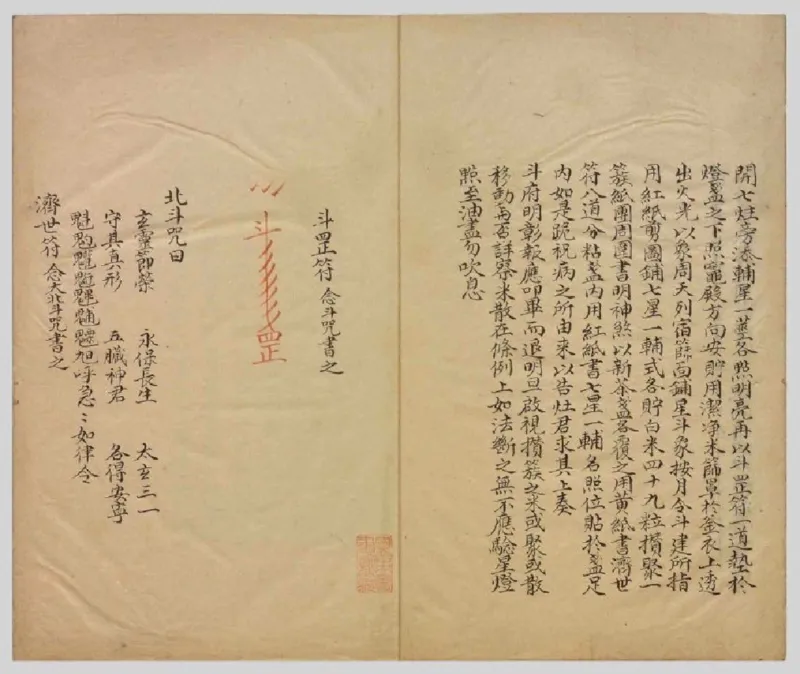 開七炷旁添輔星一盞各照明亮再以斗罡符一道墊於
燈盞之下照竈殿方向安貯用潔净米篩罩於釜衣上透
出火光以象周天列宿篩面鋪星斗象按月令斗建所指
用紅紙剪圓鋪七星一輔式各貯白米四十九粒攢聚一
簇紙團周圍書明神煞以新茶盞各覆之用黄紙書濟世
符八道分粘盞内用紅紙書七星一輔名照位貼於盞足
内如是跪祝病之所由来以告灶君求其上奏
斗府明彰報應叩畢而退明旦啟視攢簇之米或聚或散
移動与否詳察米散在條例上如法斷之無不應驗星燈
照至油盡勿吹息
斗罡符 念斗咒書之
斗 罡
北斗咒曰
玄靈節榮 永保長生 太玄三一
守其真形 五臟神君 各得安寧
魁𩲃䰢魓䰡魒魕旭呼急ミ如律令
濟世符 念大北斗咒書之